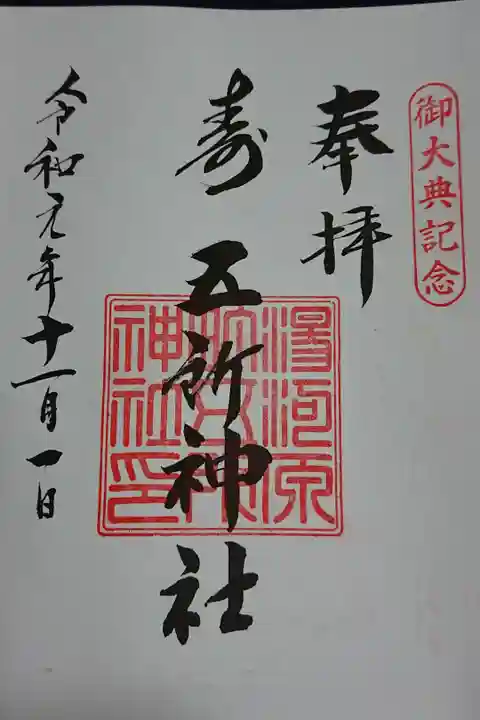 御大典記念
奉拝
寿
五所神社
湯河原
神社印
令和元年十一月一日